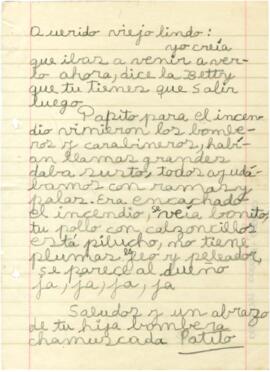 Querido viejo lindo:
yo creía
que ibas a venir a ver-
lo ahora, dice la Betty
que tu tienes que salir
luego.
Papito para el incen-
dio vinieron los bombe-
ros y carabineros, habí-
an llamas grandes
daba susto, todos ayudá-
bamos con ramas y
palas. Era encachado
el incendio, se veía bonito,
tu pollo con calzoncillos
está pilucho, no tiene
plumas feo y peleador,
se parece al dueño
ja, ja, ja, ja
Saludos y un abrazo
de tu hija bombera
chamuscada Patito